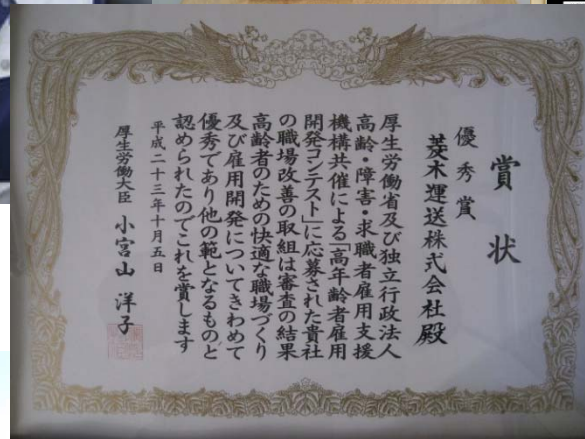 賞状
優秀賞
菱木運送株式会社殿
厚生労働省及び独立行政法人
高齢・障害・求職者雇用支援
機構共催による「高年齢者雇用
開発コンテスト」に応募された貴社
の職場改善の取組は審査の結果
高齢者のための快適な職場づくり
及び雇用開発についてきわめて
優秀であり他の範となるものと
認められたのでこれを賞します
平成二十三年十月五日
厚生労働大臣 小宮山洋子